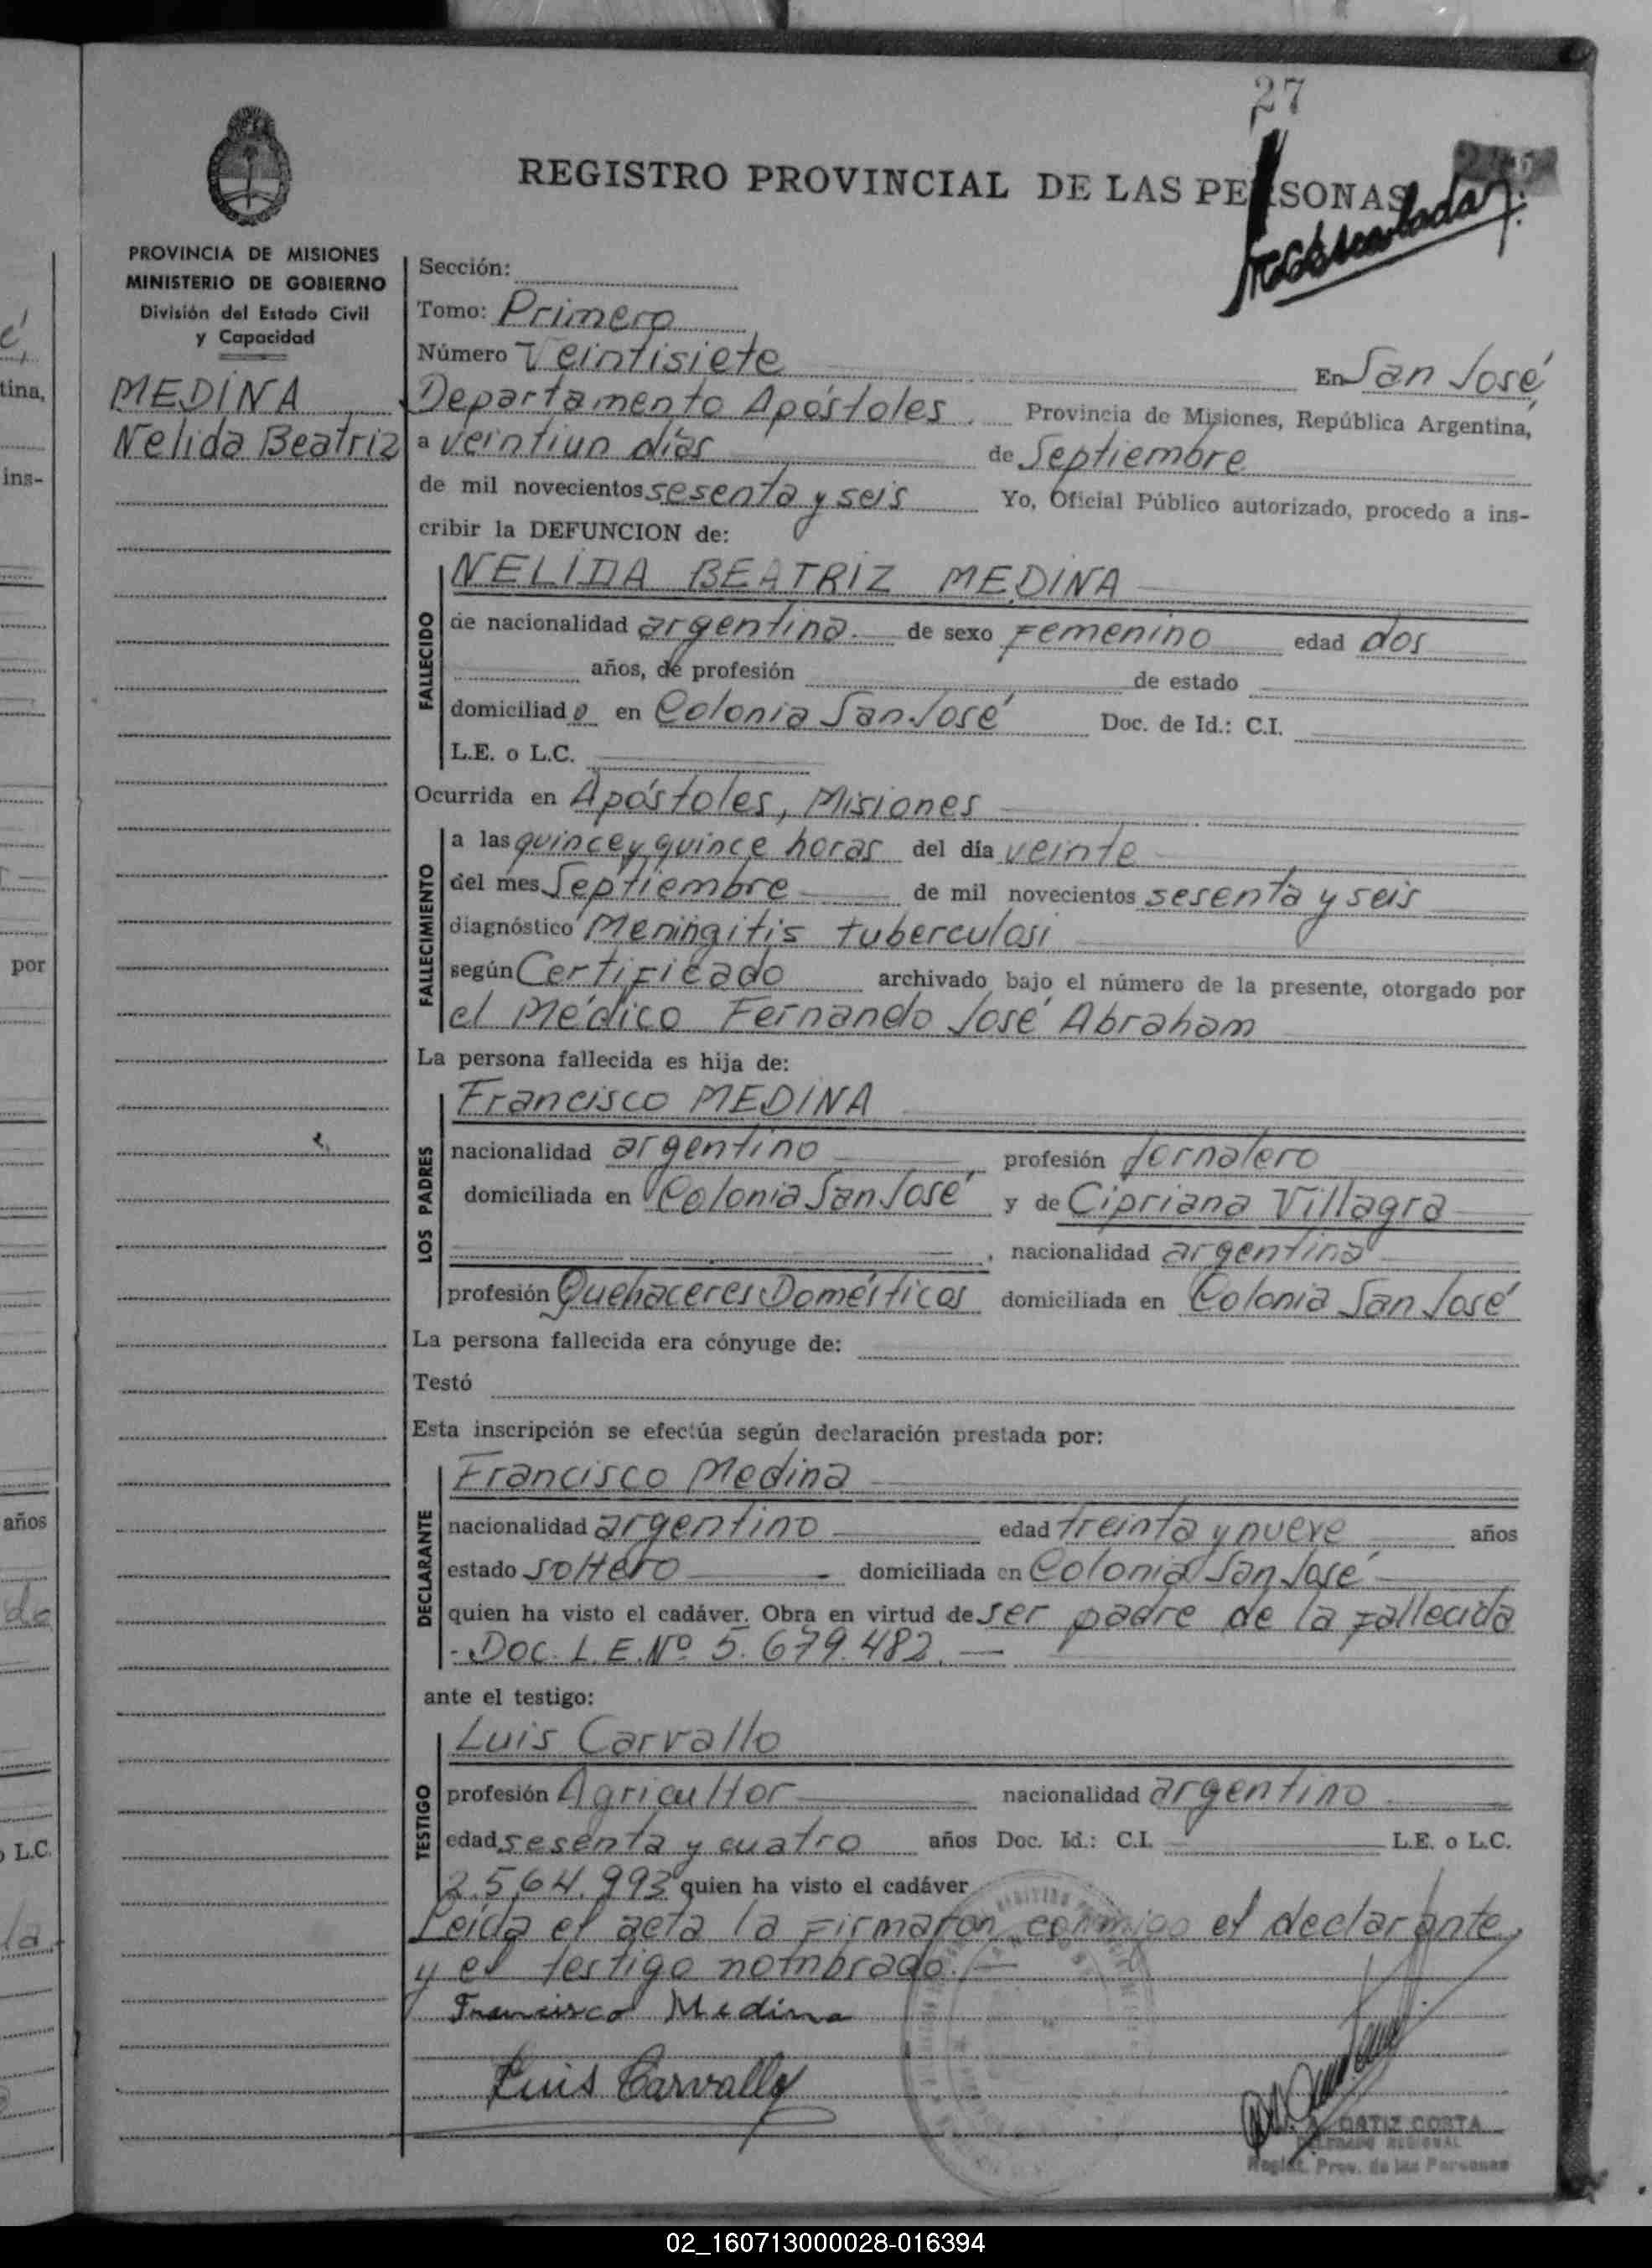 27
REGISTRO PROVINCIAL DE LAS PERSONAS
PROVINCIA DE MISIONES
MINISTERIO DE GOBIERNO
División del Estado Civil
y Capacidad
MEDINA
Nelida Beatriz
Sección:
Tomo: Primero
Número Veintisiete En San José,
Departamento Apóstoles, Provincia de Misiones, República Argentina,
a veintiun días de Septiembre
de mil novecientos sesenta y seis Yo, Oficial Público autorizado, procedo a ins-
cribir la DEFUNCION de:
FALLECIDO
NELIDA BEATRIZ MEDINA
de nacionalidad argentina. de sexo Femenino edad dos
años, de profesión de estado
domiciliado en Colonia San José Doc. de Id.: C.I.
L.E. o L.C.
Ocurrida en Apóstoles, Misiones
FALLECIMIENTO
a las quince y quince horas del día veinte
del mes Septiembre de mil novecientos sesenta y seis
diagnóstico Meningitis tuberculosi
según Certificado archivado bajo el número de la presente, otorgado por
el Médico Fernando José Abraham
La persona fallecida es hija de:
LOS PADRES
Francisco MEDINA
nacionalidad argentino profesión Jornalero
domiciliada en Colonia San José y de Cipriana Villagra
, nacionalidad argentina
profesión Quehaceres Domésticos domiciliada en Colonia San José
La persona fallecida era cónyuge de:
Testó
Esta inscripción se efectúa según declaración prestada por:
DECLARANTE
Francisco Medina
nacionalidad argentino edad treinta y nueve años
estado soltero domiciliada en Colonia San José
quien ha visto el cadáver. Obra en virtud de ser padre de la fallecida
- Doc. L.E. Nº 5.679.482. —
ante el testigo:
TESTIGO
Luis Carvallo
profesión Agricultor nacionalidad argentino
edad sesenta y cuatro años Doc. Id.: C.I. L.E. o L.C.
2.564.993 quien ha visto el cadáver
Leída el acta la firmaron conmigo el declarante,
y el testigo nombrado. —
Francisco Medina
Luis Carvallo
ORTIZ COSTA
DELEGADO REGIONAL
Regist. Prov. de las Personas
é
tina,
ins-
por
años
do
o L.C.
la
02_160713000028-016394